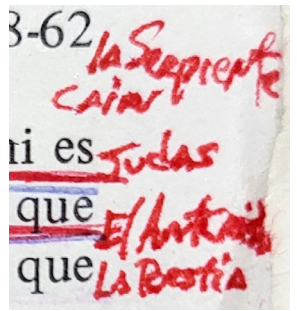 8-62
la Serpiente
Cain
ni es Judas
que El Anticristo
que La Bestia